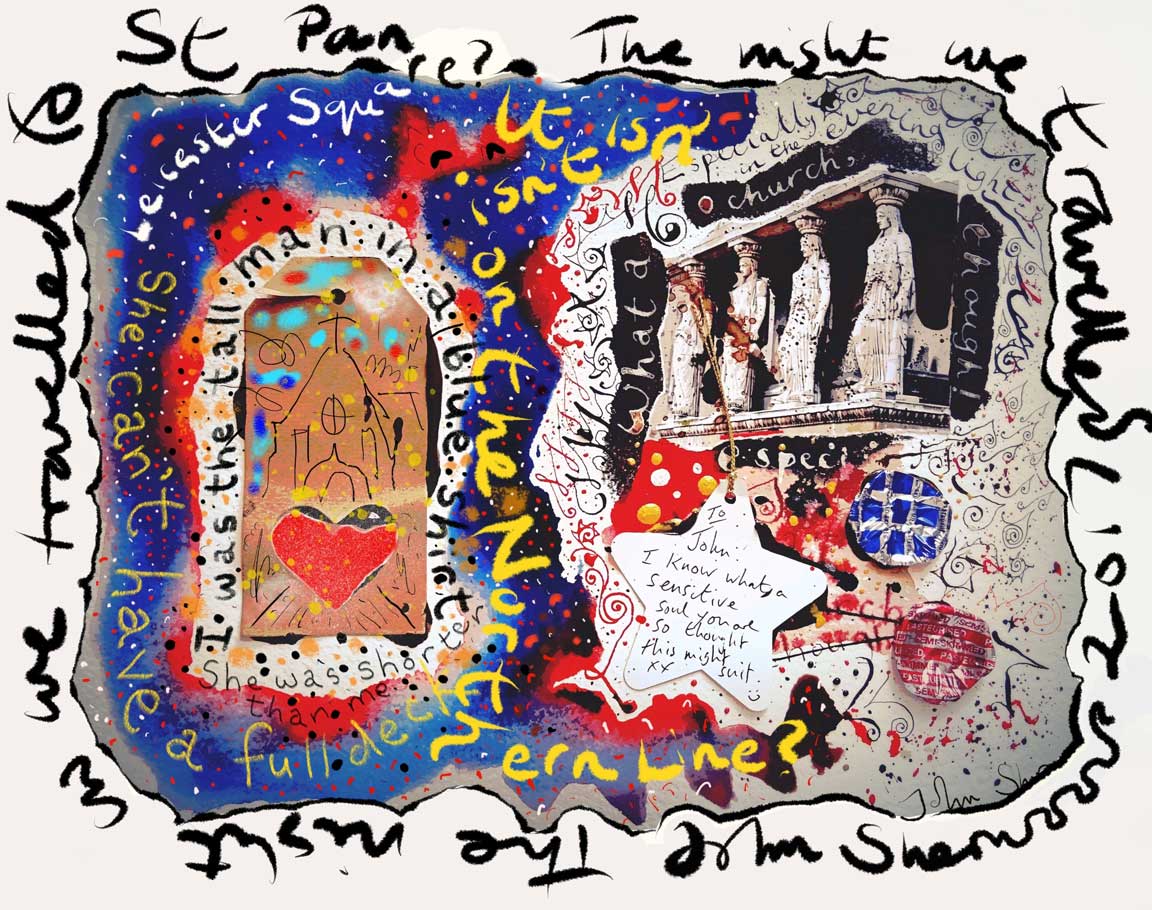 St Pancre?
The night we travelled
to
Leicester Squa
It isn
isn't on the Northern Line?
She can't have a full deck
I was the tall man in a blue shirt
She was shorter
than me
Especially
in the evening
light
What a church,
though!
especi
To
John.
I know what a
sensitive
soul you are
so thought
this might
suit
xx
John Sherwood
The night
we travelled